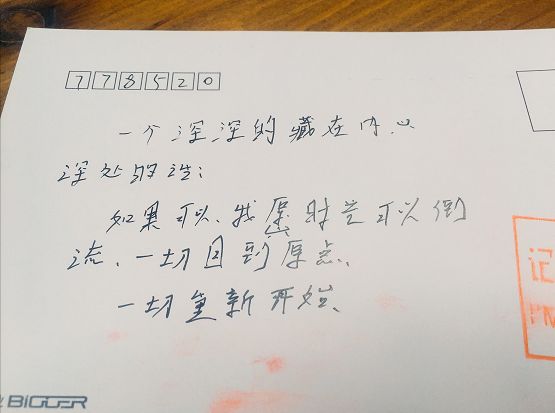 778520
一个深深的藏在内心
深处的话:
如果可以、我愿时光可以倒
流、一切回到原点、
一切重新开始、
记
BIGGER